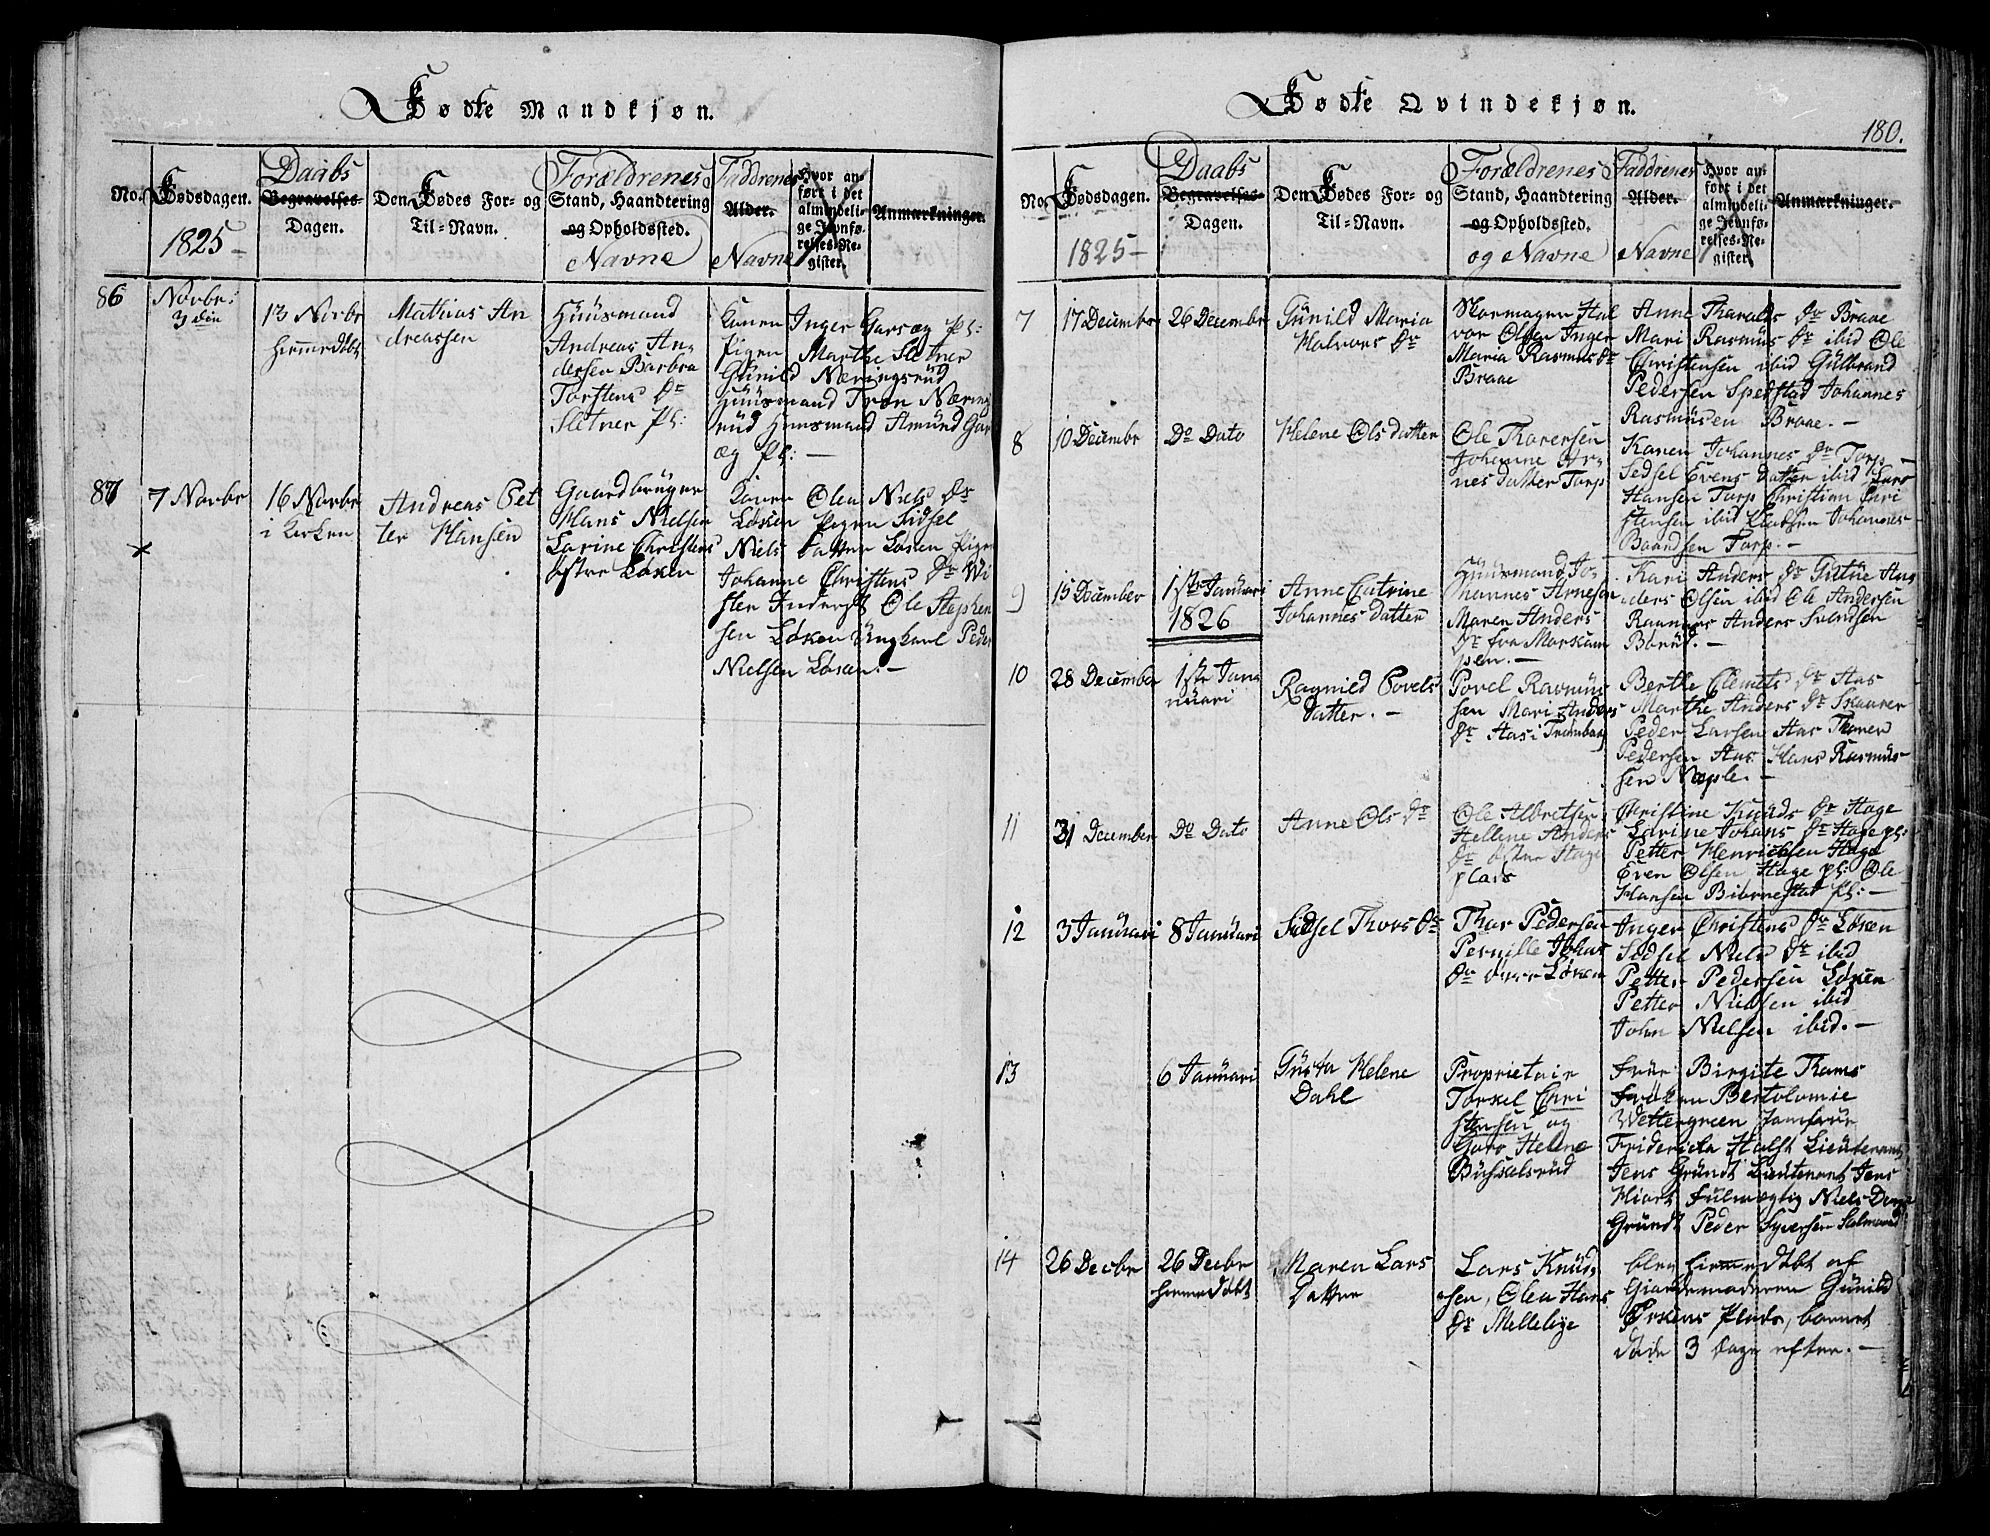 Fødte Mandkjøn.
No.
Fødsdagen.
1825 -
Daabs
Begravelses-
Dagen.
Den Fødes For- og
Til-Navn.
Forældrenes
Stand, Haandtering
og Opholdssted.
Navne
Faddrenes
Alder.
Navne
Hvor an-
ført i det
almindeli-
ge Jevnfø-
relses-Re-
gister.
Anmærkninger.
86
Novbr:
3 die
13 Novbr
hiemedøbt
Mathias An
dreassen
Huusmand
Andreas An-
dersen Barbra
Torstens Dr
Sletner Pl:
Konen Inger Garsæg Pl:
Pigen Marthe Sletner
Gunild Næringsrud
Huusmand Tron Næring
rud Huusmand Amund Gar
æg Pl: —
87
7 Novbr
16 Novbr
i Kirken
Andreas Pet
ter Hansen
Gaardbruger
Hans Nielsen
Larine Christens
østre Løken
Konen Olea Niels Dr
Løken Pigen Sidsel
Niels Datter Løken Pigen
Johanne Christens Dr Wi
ster Ole Stephen
sen Løken Ungkarl Peder
Nielsen Løken. —
Fødte Qvindekjøn.
180.
No.
Fødsdagen.
1825 -
Daabs
Begravelses-
Dagen.
Den Fødes For- og
Til-Navn.
Forældrenes
Stand, Haandtering
og Opholdssted.
og Navne
Faddrenes
Alder.
Navne
Hvor an-
ført i det
almindeli-
ge Jevnfø-
relses-Re-
gister.
Anmærkninger.
7
17 Decembr
26 Decembr
Gunild Maria
Halvors Dr
Skormager Hal
vor Olsen Inger
Maria Rasmus Dr
Braae
Anne Tharalds Dr Braae
Mari Rasmus Dr ibid Ole
Christensen ibid Gulbrand
Pedersen Johannes
Rasmusen Braae. —
8
10 Decembr
Do Dato
Helene Ols datter
Ole Thoresen
Johanne Ar-
nes datter Torp
Karen Johannes Dr Torp —
Sedsel Evens Datter ibid Lars
Hansen Torp Christian Chri
stensen ibid Johannes
Baardsen Torp. —
9
15 December
1ste Januari
1826
Anne Catrine
Johannes datter
Huusmand Jo-
hannes Arnesen
Maren Anders
Dr fra
pen. —
Kari Anders Dr An
ders Olsen ibid Ole Andersen
Anders Svendsen
Borud. —
10
28 December
1ste Jan
nuari
Ragnild Povels
datter. —
Povel Rasmus
sen Mari Anders
Dr Aas i Trømborg
Berthe Clemets Dr Aas
Marthe Anders Dr Skaarer
Peder Larsen Aas Thoner
Pedersen Aas Hans Rasmus
sen Næple. —
11
31 December
Do Dato
Anne Ols Dr
Ole Albretsen
Hellene Anders
Dr østre Hage
plads
Christine Knuds Dr Hage
Larine Johans Dr Hage pl:
Petter Henrichsen Hage
Even Olsen Hage pl: Ole
Hansen Biørnestad pl: —
12
3 Januari
8 Januari
Sidsel Thors Dr
Thor Pedersen
Pernille Johans
Dr øvre Løken
Inger Christens Dr Løken
Sedsel Niels Dr ibid
Petter Pedersen Løken
Petter Nielsen ibid
John Nielsen ibid. —
13
6 Januari
Gusta Helene
Dahl
Proprietair
Torkel Chri
stensen og
Goro Helene
Buskelsrud
Frue Birgite Thams
Frøken Bertolomie
Wettergreen Jomfrue
Fridericka Holst Lieutenant
Jens Grundt Lieutenant Jens
Hiort fulmægtig Niels
Grundt Peder Syversen
14
26 Decbr
26 Decbr
hiemedøbt
Maren Lars
Datter
Lars Knud
sen, Olea Hans
Dr Mellebye
blev hiemedøbt af
Giordemoderen Gunild
Plads, barnet
døde 3 dage efter. —